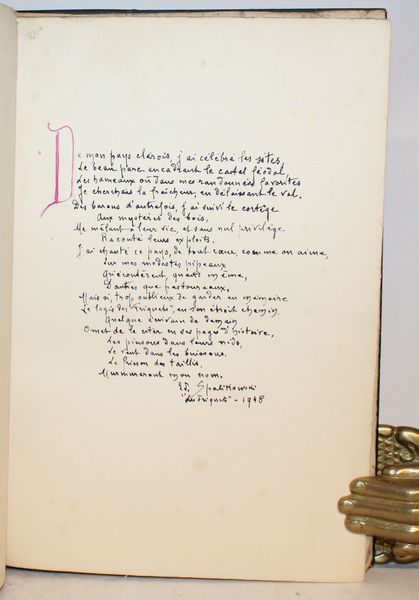 De mon pays clérois, j'ai célébré les sites,
Le beau parc encadrant le castel féodal,
Les hameaux où dans mes randonnées favorites
Je cherchais la fraîcheur, en délaissant le val.
Des barons d'autrefois, j'ai suivi le cortège
Aux mystères des bois,
Me mêlant à leur vie, et sans nul privilège
Raconté leurs exploits.
J'ai chanté ce pays, de tout cœur, comme on aime,
Sur mes modestes pipeaux
Qu'écoutèrent, quand même,
D'autres que pastoureaux.
Mais si, trop oublieux de garder en mémoire
Le logis des "Friquets", en son étroit chemin,
Quelque écrivain de demain
Omet de le citer en ses pages d'histoire,
Les pinsons dans leurs nids,
Le vent dans les buissons,
Le frisson des taillis,
Murmureront mon nom.
Ed. Spalikowski
"Les Friquets" - 1948